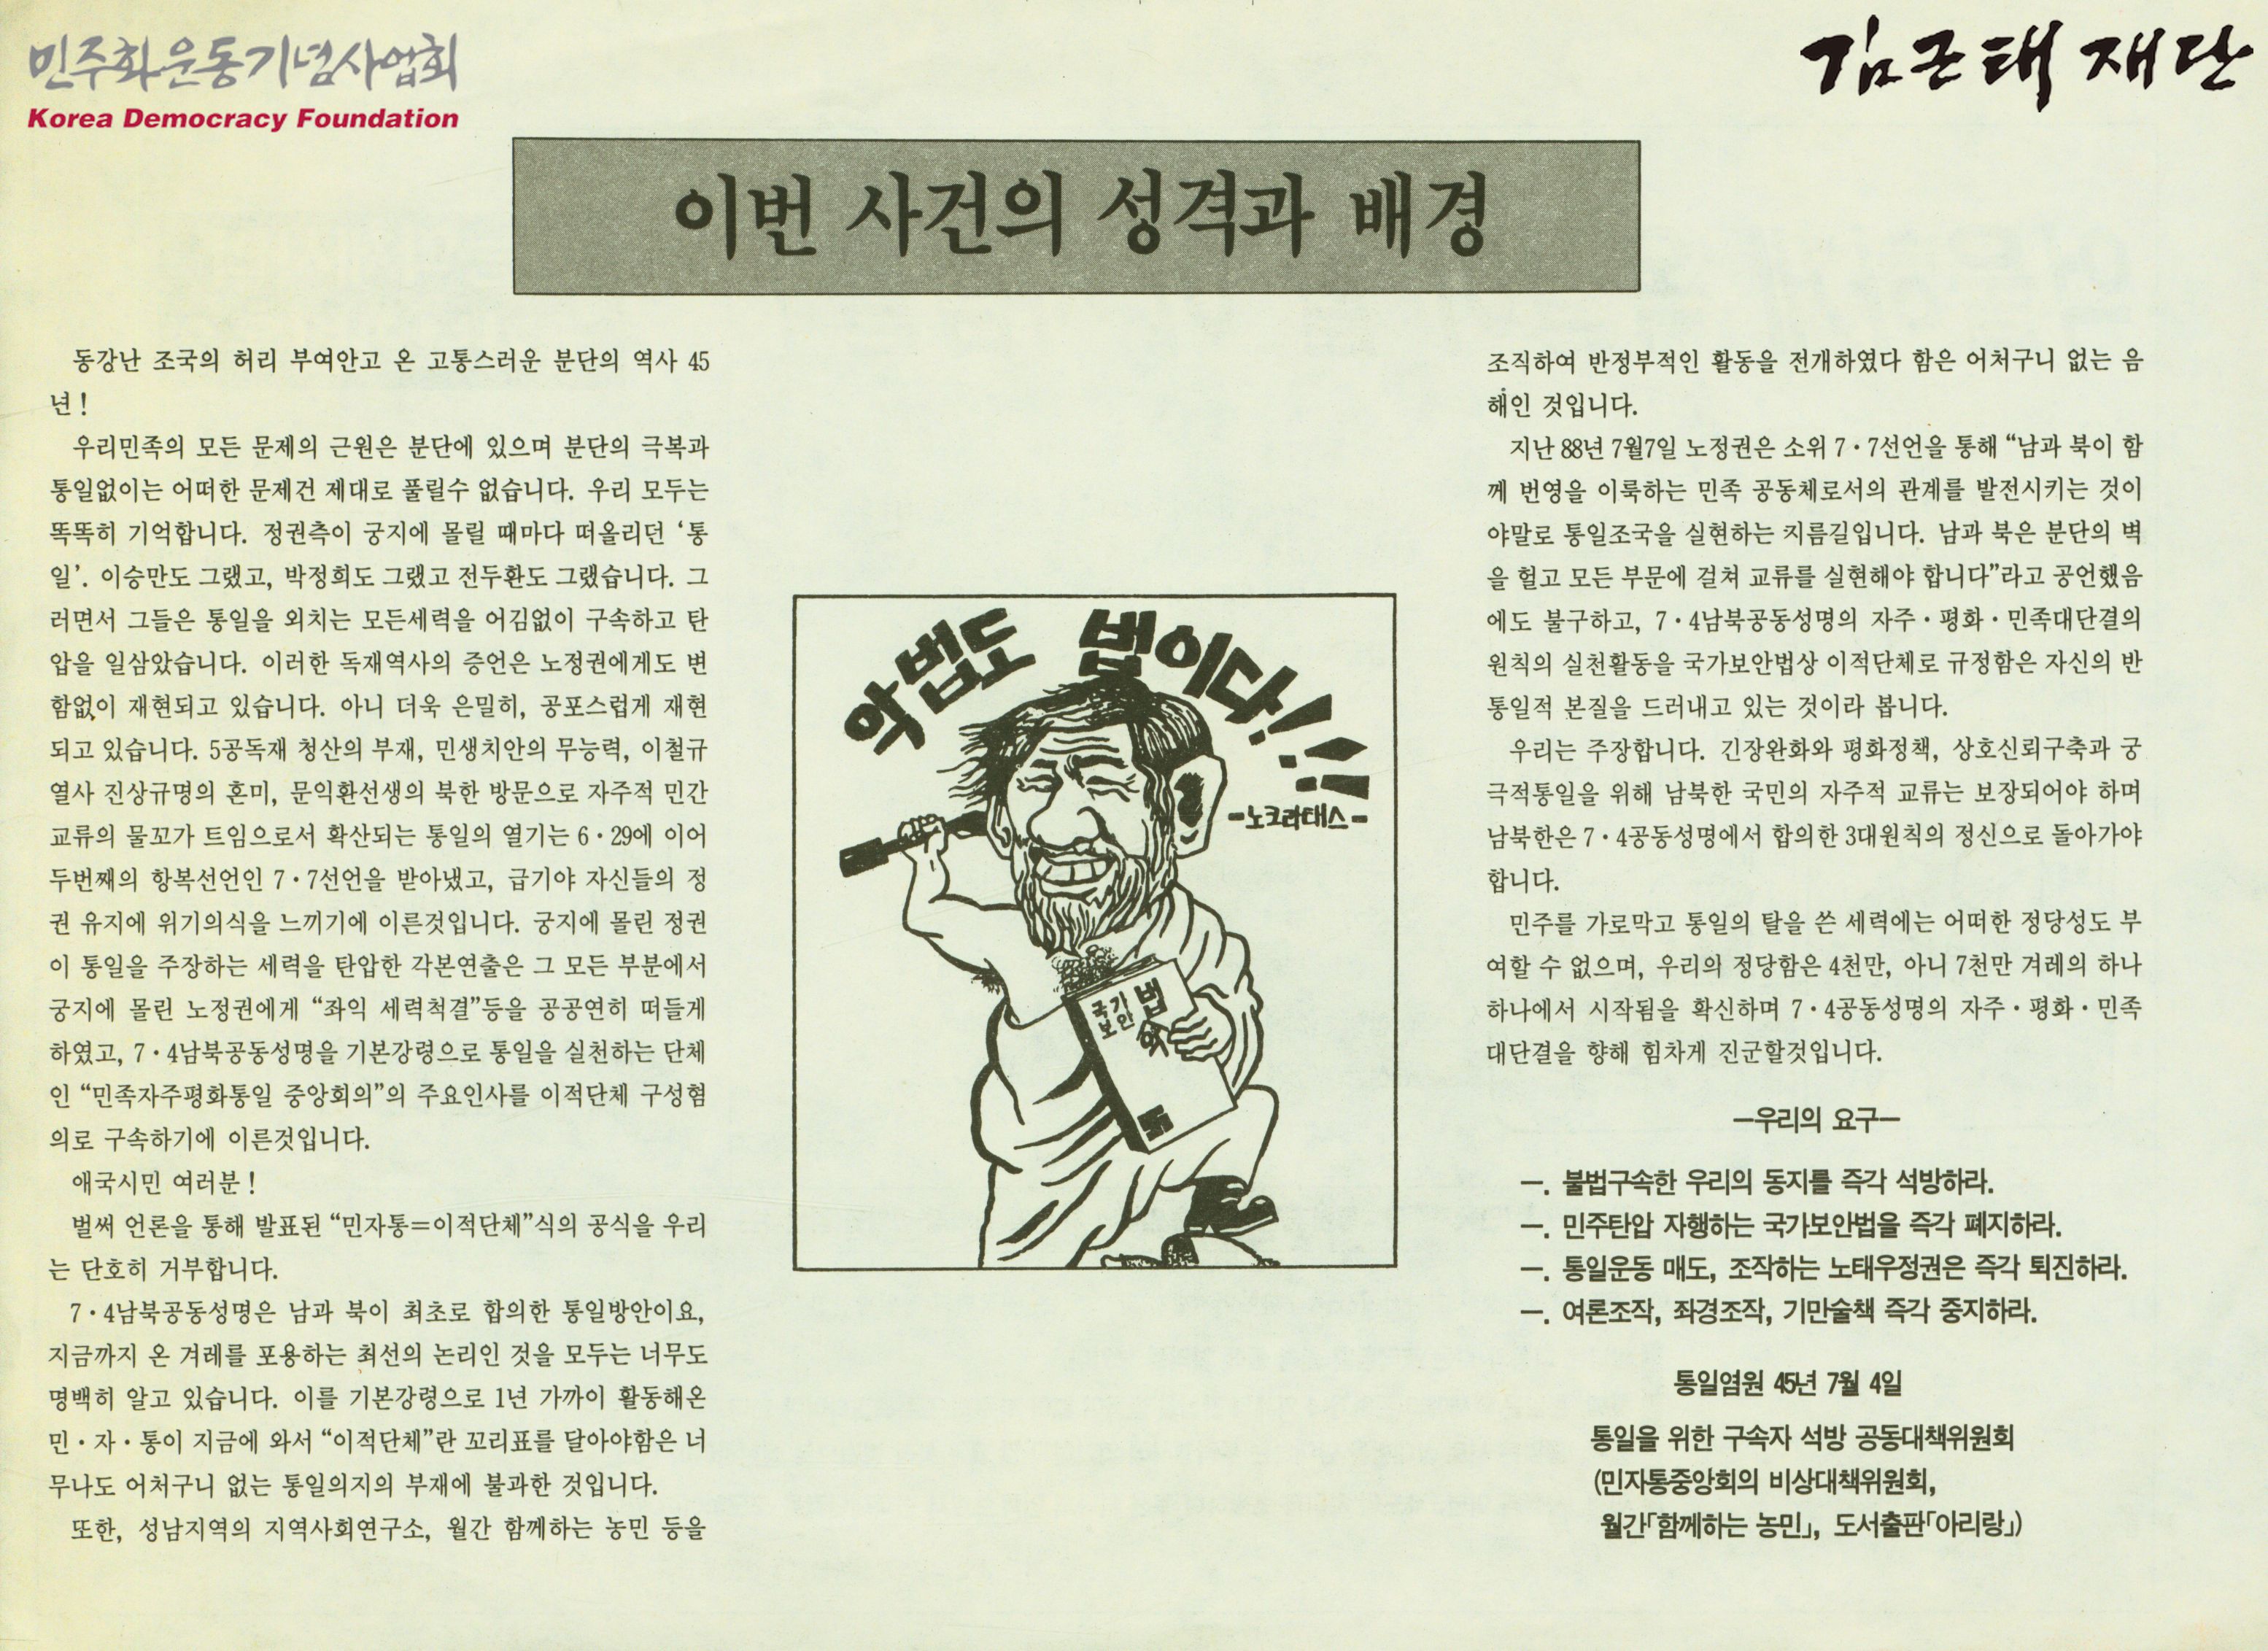 민주화운동기념사업회
Korea Democracy Foundation
김근태 재단
이번 사건의 성격과 배경
동강난 조국의 허리 부여안고 온 고통스러운 분단의 역사 45
년!
우리민족의 모든 문제의 근원은 분단에 있으며 분단의 극복과
통일없이는 어떠한 문제건 제대로 풀릴수 없습니다. 우리 모두는
똑똑히 기억합니다. 정권측이 궁지에 몰릴 때마다 떠올리던 ‘통
일’. 이승만도 그랬고, 박정희도 그랬고 전두환도 그랬습니다. 그
러면서 그들은 통일을 외치는 모든세력을 어김없이 구속하고 탄
압을 일삼았습니다. 이러한 독재역사의 증언은 노정권에게도 변
함없이 재현되고 있습니다. 아니 더욱 은밀히, 공포스럽게 재현
되고 있습니다. 5공독재 청산의 부재, 민생치안의 무능력, 이철규
열사 진상규명의 혼미, 문익환선생의 북한 방문으로 자주적 민간
교류의 물꼬가 트임으로서 확산되는 통일의 열기는 6·29에 이어
두번째의 항복선언인 7·7선언을 받아냈고, 급기야 자신들의 정
권 유지에 위기의식을 느끼기에 이른것입니다. 궁지에 몰린 정권
이 통일을 주장하는 세력을 탄압한 각본연출은 그 모든 부분에서
궁지에 몰린 노정권에게 “좌익 세력척결”등을 공공연히 떠들게
하였고, 7·4남북공동성명을 기본강령으로 통일을 실천하는 단체
인 “민족자주평화통일 중앙회의”의 주요인사를 이적단체 구성혐
의로 구속하기에 이른것입니다.
애국시민 여러분!
벌써 언론을 통해 발표된 “민자통=이적단체”식의 공식을 우리
는 단호히 거부합니다.
7·4남북공동성명은 남과 북이 최초로 합의한 통일방안이요,
지금까지 온 겨레를 포용하는 최선의 논리인 것을 모두는 너무도
명백히 알고 있습니다. 이를 기본강령으로 1년 가까이 활동해온
민·자·통이 지금에 와서 “이적단체”란 꼬리표를 달아야함은 너
무나도 어처구니 없는 통일의지의 부재에 불과한 것입니다.
또한, 성남지역의 지역사회연구소, 월간 함께하는 농민 등을
악법도 법이다!!!
-노크라테스-
국가
보안
법
조직하여 반정부적인 활동을 전개하였다 함은 어처구니 없는 음
해인 것입니다.
지난 88년 7월7일 노정권은 소위 7·7선언을 통해 “남과 북이 함
께 번영을 이룩하는 민족 공동체로서의 관계를 발전시키는 것이
야말로 통일조국을 실현하는 지름길입니다. 남과 북은 분단의 벽
을 헐고 모든 부문에 걸쳐 교류를 실현해야 합니다”라고 공언했음
에도 불구하고, 7·4남북공동성명의 자주·평화·민족대단결의
원칙의 실천활동을 국가보안법상 이적단체로 규정함은 자신의 반
통일적 본질을 드러내고 있는 것이라 봅니다.
우리는 주장합니다. 긴장완화와 평화정책, 상호신뢰구축과 궁
극적통일을 위해 남북한 국민의 자주적 교류는 보장되어야 하며
남북한은 7·4공동성명에서 합의한 3대원칙의 정신으로 돌아가야
합니다.
민주를 가로막고 통일의 탈을 쓴 세력에는 어떠한 정당성도 부
여할 수 없으며, 우리의 정당함은 4천만, 아니 7천만 겨레의 하나
하나에서 시작됨을 확신하며 7·4공동성명의 자주·평화·민족
대단결을 향해 힘차게 진군할것입니다.
—우리의 요구—
—. 불법구속한 우리의 동지를 즉각 석방하라.
—. 민주탄압 자행하는 국가보안법을 즉각 폐지하라.
—. 통일운동 매도, 조작하는 노태우정권은 즉각 퇴진하라.
—. 여론조작, 좌경조작, 기만술책 즉각 중지하라.
통일염원 45년 7월 4일
통일을 위한 구속자 석방 공동대책위원회
(민자통중앙회의 비상대책위원회,
월간「함께하는 농민」, 도서출판「아리랑」)